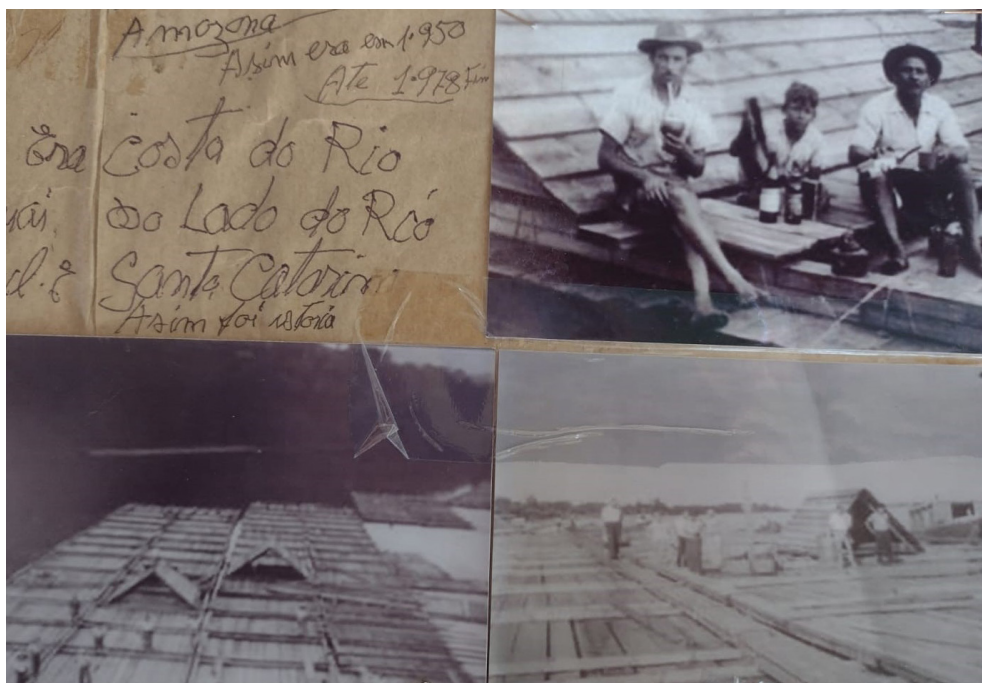 Amazona
Asim era em 1.950
Ate 1.978 Fim
Era Costa do Rio
ao Lado do Rio
Santa Catarin
Asim foi istoria